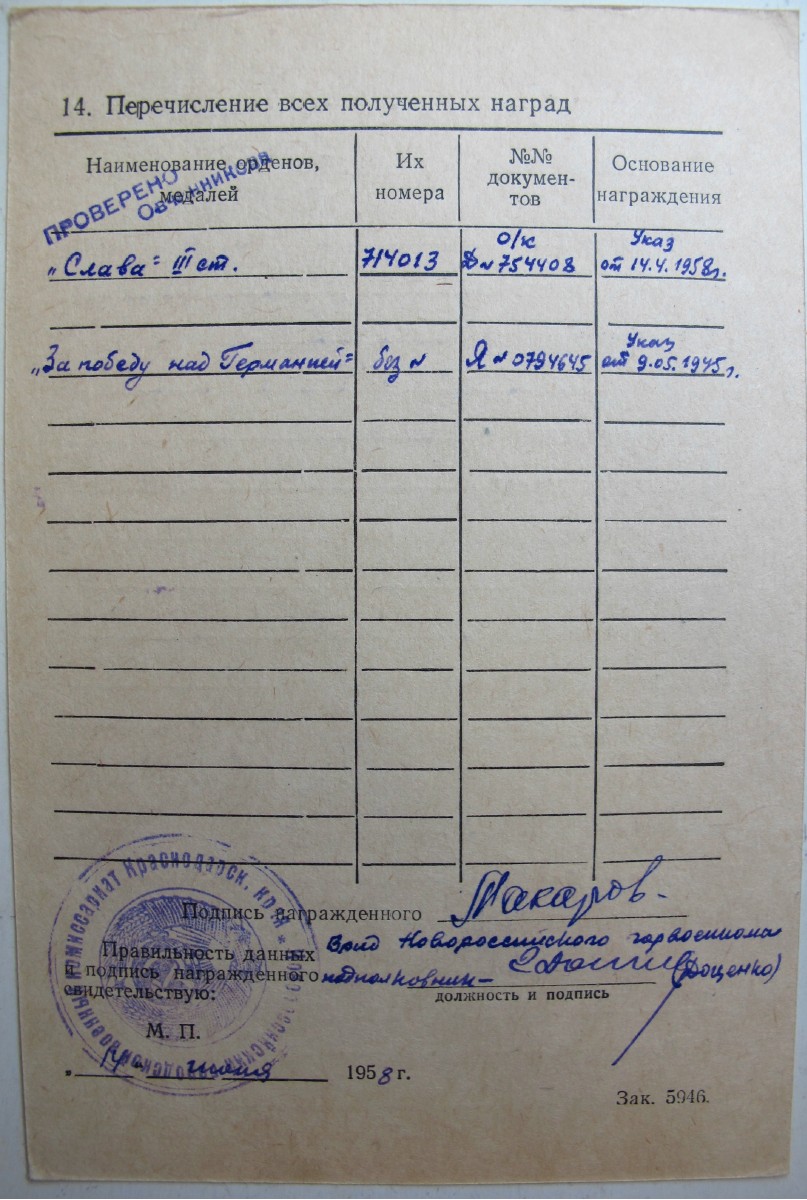 14. Перечисление всех полученных наград
Наименование орденов, медалей
Их номера
№№ докумен-тов
Основание награждения
ПРОВЕРЕНО
Овчинникова
„Слава“ III ст.
714013
О/к № 754408
Указ от 14.4.1958г.
„За победу над Германией“
без №
Я № 0794645
Указ от 9.05.1945г.
Подпись награжденного Макаров
Правильность данных
и подпись награжденного
свидетельствую:
Врид Новороссийского горвоенкома
подполковник (Доценко)
должность и подпись
М. П.
„14“ июля 1958 г.
Зак. 5946.
военный комиссариат Краснодарск. края